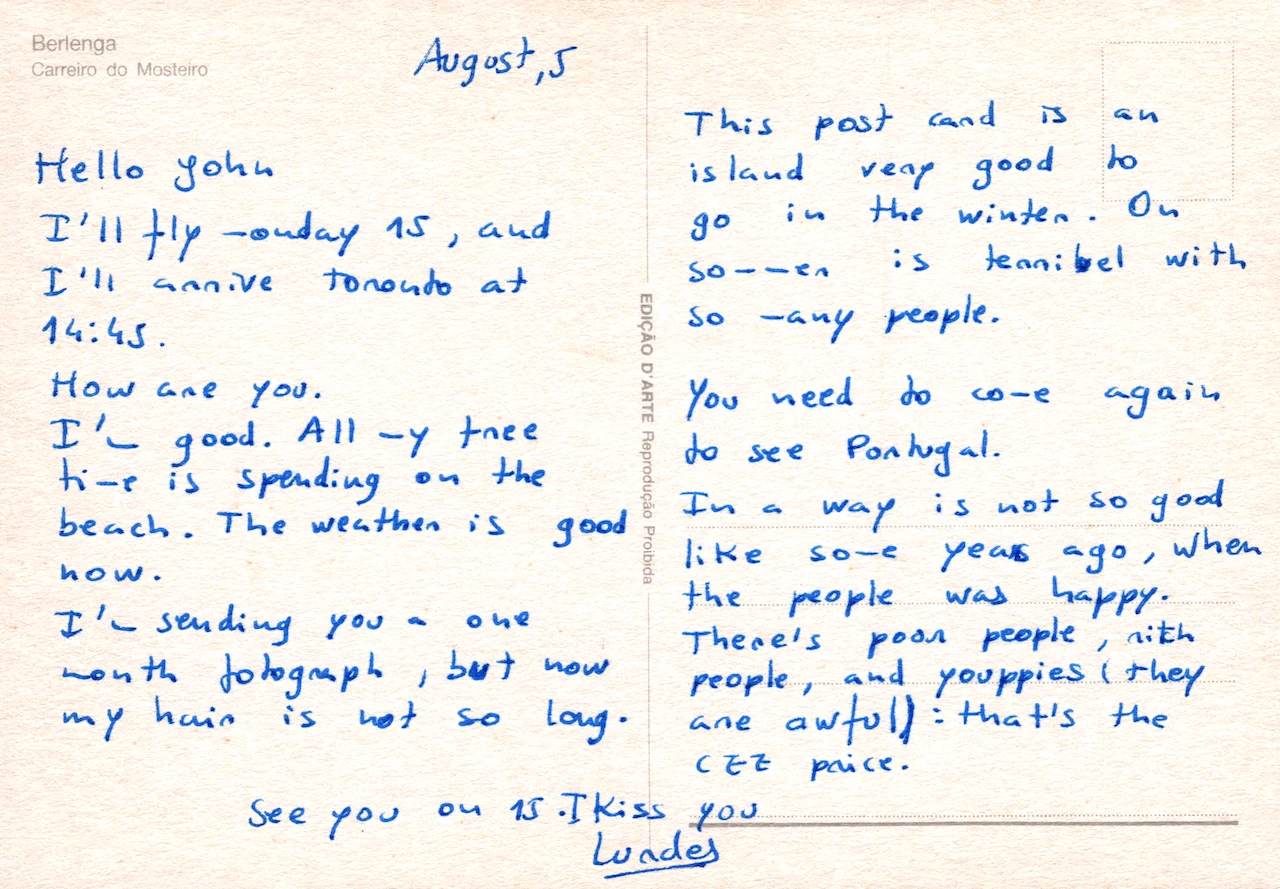 Berlenga
Carreiro do Mosteiro
August, 5
Hello John
I'll fly monday 15, and
I'll arrive Toronto at
14:45.
How are you.
I'm good. All my free
time is spending on the
beach. The weather is good
now.
I'm sending you a one
month fotograph, but now
my hair is not so long.
See you on 15. I Kiss you
Lurdes
EDIÇÃO D'ARTE Reprodução Proibida
This post card is an
island very good to
go in the winter. On
sommer is terribel with
so many people.
You need to come again
to see Portugal.
In a way is not so good
like some years ago, when
the people was happy.
There's poor people, rich
people, and youppies (they
are awful) : that's the
CEE price.